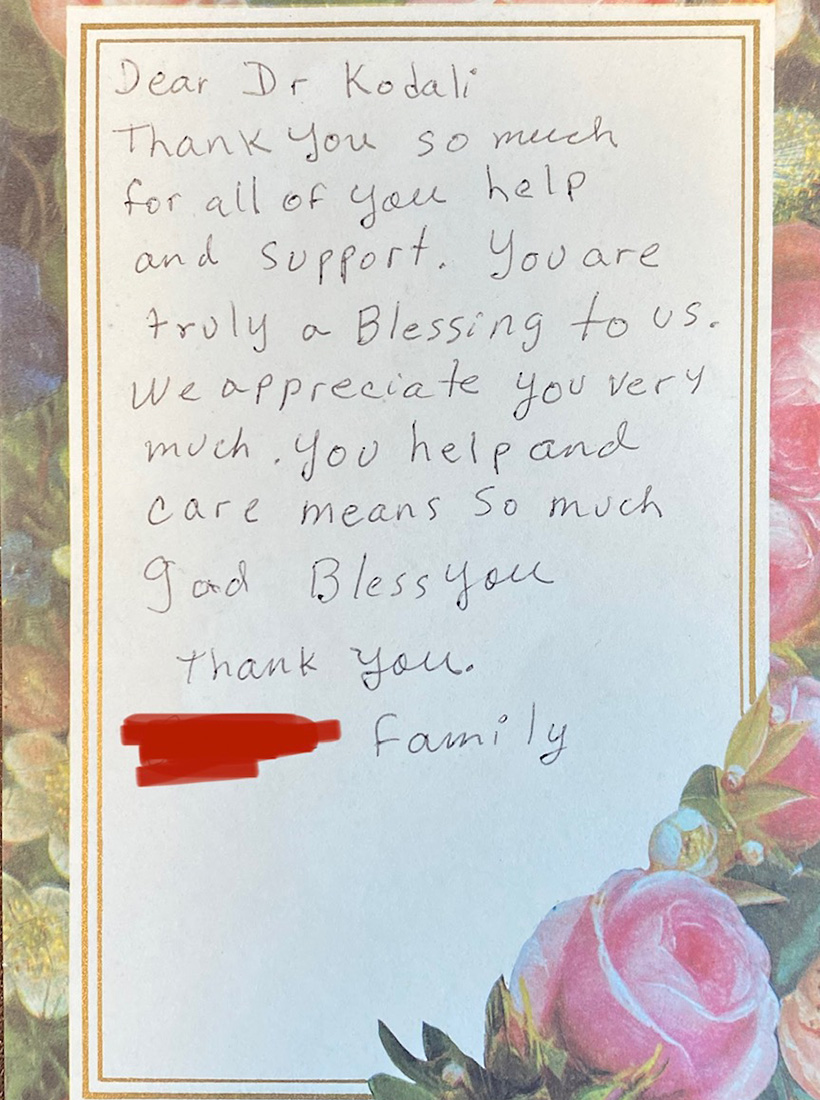 Dear Dr Kodali
Thank you so much
for all of you help
and support. You are
truly a Blessing to us.
We appreciate you very
much. You help and
care means so much
god Bless you
Thank you.
Family